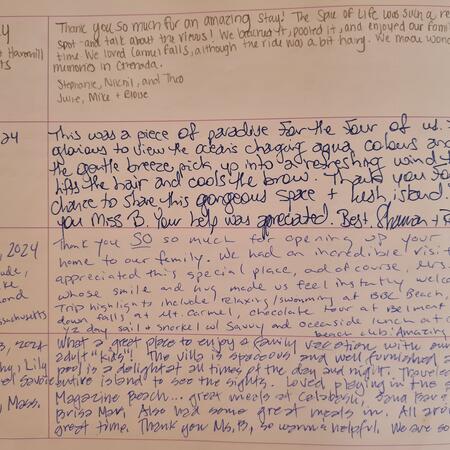 Thank you so much for an amazing stay! The Spice of Life was such a
spot - and talk about the views! We beached it, pooled it, and enjoyed our family
time. We loved Carmel Falls, although the ride was a bit hairy. We made
memories in Grenada.
Stephanie, and Theo
Julie, Mike + Eloise
Hammill
24
This was a piece of paradise for the four of us.
glorious to view the oceans changing aqua colours and
the gentle breeze pick up into a refreshing wind
lifts the hair and cools the brow. Thank you
chance to share this gorgeous space + lush island.
you Miss B. Your help was appreciated. Best,
, 2024
Mass.
Thank you SO so much for opening up your
home to our family. We had an incredible visit
appreciated this special place, and of course, Mrs.
whose smile and hug made us feel instantly
Trip highlights include relaxing/swimming at BBC Beach,
down falls at Mt. Carmel, chocolate tour at Belmont
1/2 day sail + snorkel w/ Savvy and oceanside lunch at
beach club. Amazing
, 2024
, Lily
Savoie
, Mass.
What a great place to enjoy a family vacation with our
adult "kids"! The villa is spacious and well furnished
pool is a delight at all times of the day and night. Traveled
entire island to see the sights. Loved playing in the
Magazine Beach... great meals at Calabash,
Brisa Mar. Also had some great meals in. All
great time. Thank you Ms. B, so warm & helpful. We are